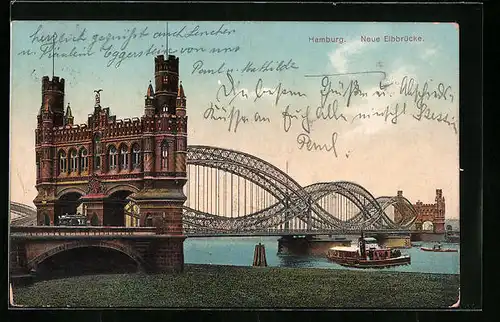 Hamburg. Neue Elbbrücke.
herzlich gegrüßt auch Lenchen
u. Fräulein Eggerstein von uns
Paul u. Mathilde
Die besten Grüße u. Abschieds
Küsse an Euch Alle
Paul.